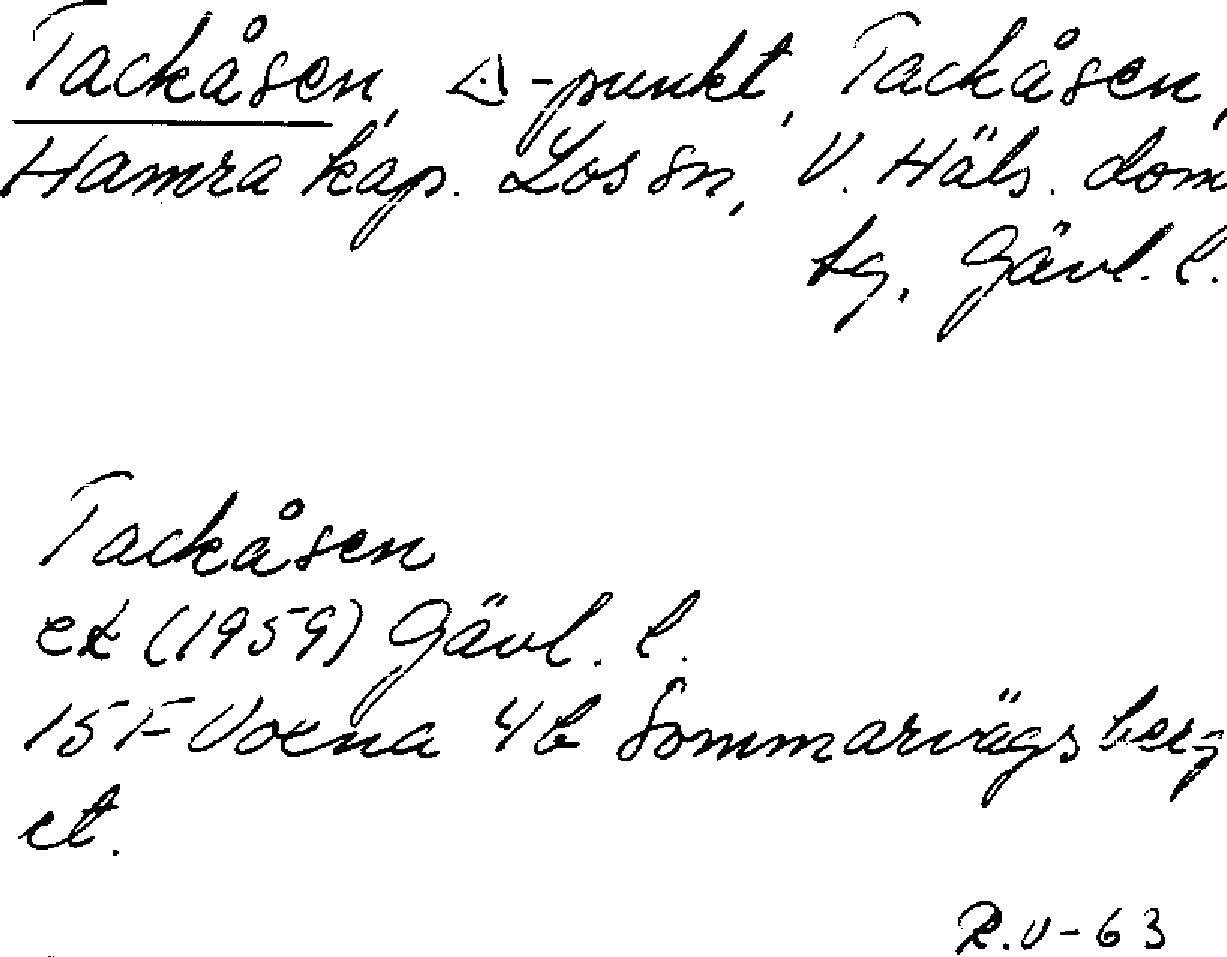 Tackåsen, △-punkt, Tackåsen,
Hamra kap. Los sn, V. Häls. dom
sg, Gävl. l.
Tackåsen
ek (1959) Gävl. l.
15F Voxna 4b Sommarvägsberg
et.
R.V-63